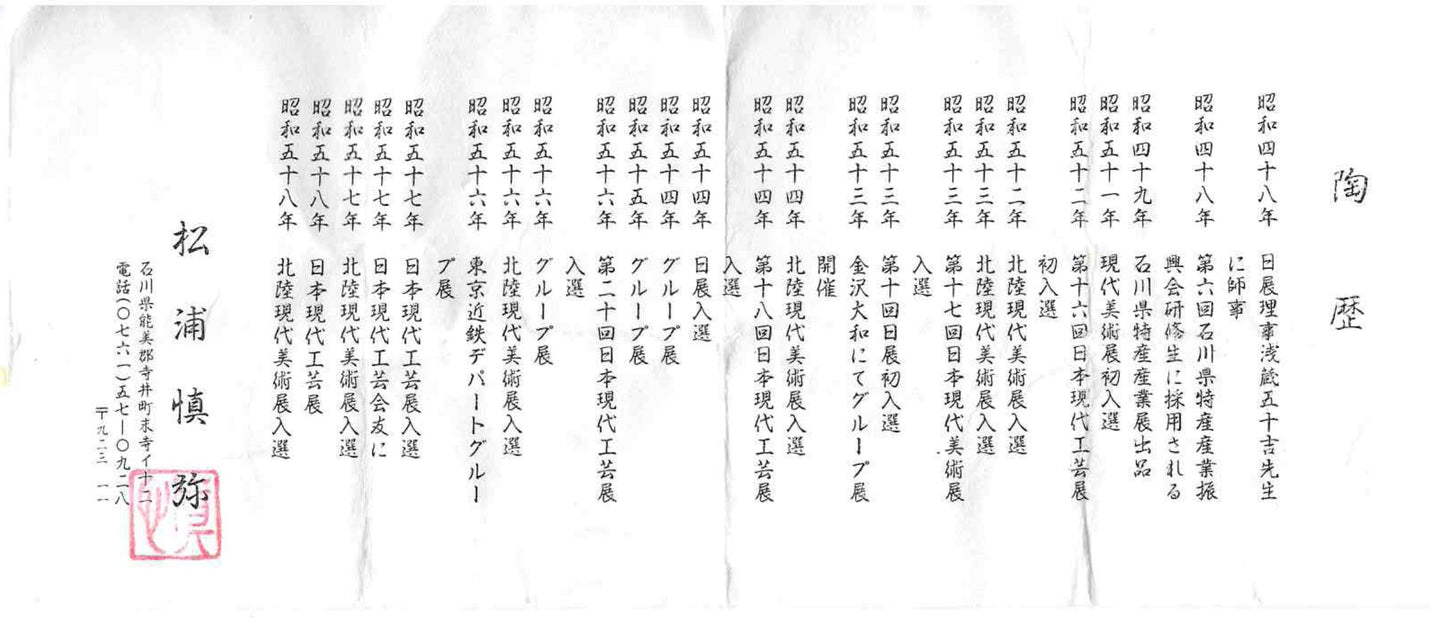 陶歴
昭和四十八年 日展理事浅蔵五十吉先生
に師事
昭和四十八年 第六回石川県特産産業振
興会研修生に採用される
昭和四十九年 石川県特産産業展出品
昭和五十一年 現代美術展初入選
昭和五十二年 第十六回日本現代工芸展
初入選
昭和五十二年 北陸現代美術展入選
昭和五十三年 北陸現代美術展入選
昭和五十三年 第十七回日本現代美術展
入選
昭和五十三年 第十回日展初入選
昭和五十三年 金沢大和にてグループ展
開催
昭和五十四年 北陸現代美術展入選
昭和五十四年 第十八回日本現代工芸展
入選
昭和五十四年 日展入選
昭和五十四年 グループ展
昭和五十五年 グループ展
昭和五十六年 第二十回日本現代工芸展
入選
昭和五十六年 グループ展
昭和五十六年 北陸現代美術展入選
昭和五十六年 東京近鉄デパートグルー
プ展
昭和五十七年 日本現代工芸展入選
昭和五十七年 日本現代工芸会友に
昭和五十七年 北陸現代美術展入選
昭和五十八年 日本現代工芸展
昭和五十八年 北陸現代美術展入選
松浦慎弥
石川県能美郡寺井町末寺イ十二
電話(〇七六一)五七ー〇九二八
〒九二三 一一